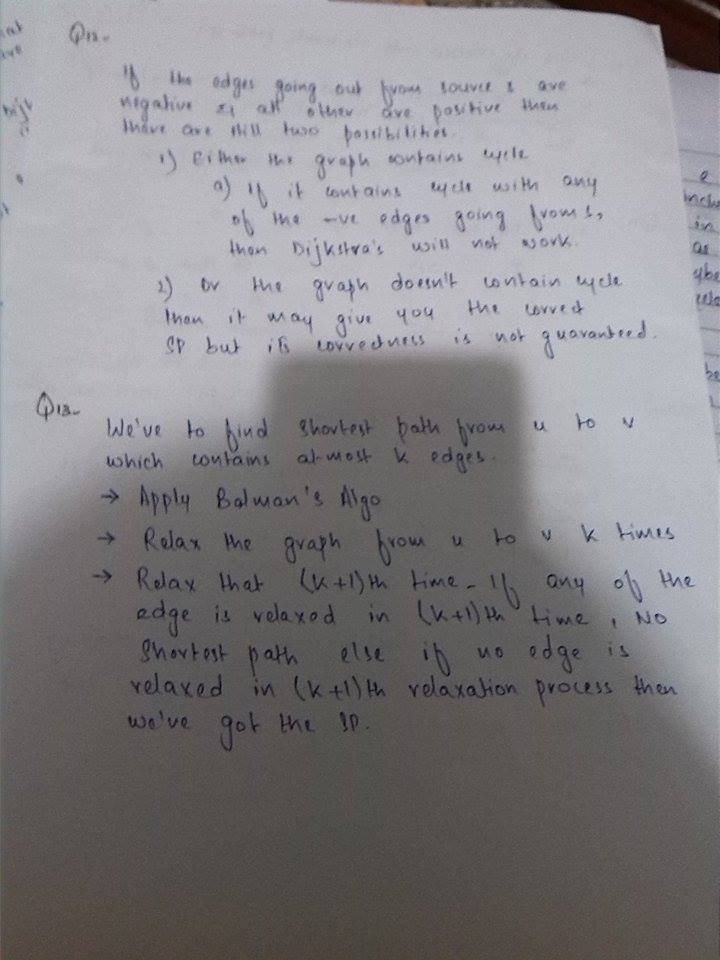 Q12.
If the edges going out from source s are
negative & all other are positive then
there are still two possibilities.
1) Either the graph contains cycle
a) If it contains cycle with any
of the -ve edges going from s,
then Dijkstra's will not work.
2) Or the graph doesn't contain cycle
then it may give you the correct
SP but its correctness is not guaranteed.
Q13-
We've to find shortest path from u to v
which contains at-most k edges.
→ Apply Balman's Algo
→ Relax the graph from u to v k times
→ Relax that (k+1)th time - If any of the
edge is relaxed in (k+1)th time, No
shortest path else if no edge is
relaxed in (k+1)th relaxation process then
we've got the SP.
e
in
as
be